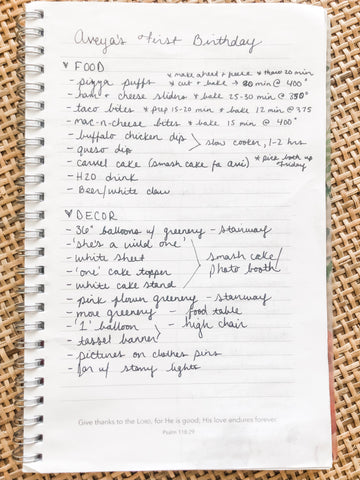 Aveya's First Birthday
♥ FOOD
* make ahead + freeze * thaw 20 min
- pizza puffs * cut + bake → 20 min @ 400°
- ham + cheese sliders * bake 25-30 min @ 350°
- taco bites * prep 15-20 min * bake 12 min @ 375
- mac-n-cheese bites * bake 15 min @ 400°
- buffalo chicken dip
- queso dip > slow cooker, 1-2 hrs.
- carvel cake (smash cake fo avi) * pick both up Friday
- H2O drink
- Beer/white claw
♥ DECOR
- 36" balloons w/ greenery - stairway
- 'she's a wild one'
- white sheet
- 'one' cake topper > smash cake/ photo booth
- white cake stand
- pink flower greenery - stairway
- more greenery - food table
- '1' balloon > - high chair
- tassel banner
- pictures on clothes pins
- jar w/ starry lights
Give thanks to the LORD, for He is good; His love endures forever.
Psalm 118:29